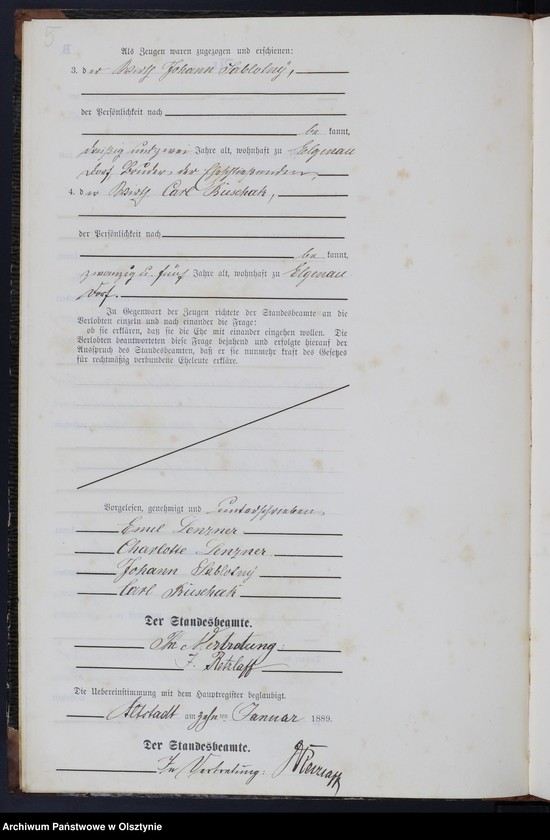 5
Als Zeugen waren zugezogen und erschienen:
3. der Wirth Johann Sablotny,
der Persönlichkeit nach
be kannt,
dreißig und zwei Jahre alt, wohnhaft zu Elgenau
Dorf, Bruder der Eheschließenden,
4. der Wirth Carl Kuschak,
der Persönlichkeit nach
be kannt,
zwanzig u. fünf Jahre alt, wohnhaft zu Elgenau
Dorf.
In Gegenwart der Zeugen richtete der Standesbeamte an die
Verlobten einzeln und nach einander die Frage:
ob sie erklären, daß sie die Ehe mit einander eingehen wollen. Die
Verlobten beantworteten diese Frage bejahend und erfolgte hierauf der
Ausspruch des Standesbeamten, daß er sie nunmehr kraft des Gesetzes
für rechtmäßig verbundene Eheleute erkläre.
Vorgelesen, genehmigt und unterschrieben
Emil Lenzner
Charlotte Lenzner
Johann Sablotny
Carl Kuschak
Der Standesbeamte.
In Vertretung:
F. Retzlaff
Die Uebereinstimmung mit dem Hauptregister beglaubigt.
Altstadt am zehn ten Januar 1889.
Der Standesbeamte.
In Vertretung: Retzlaff
Archiwum Państwowe w Olsztynie